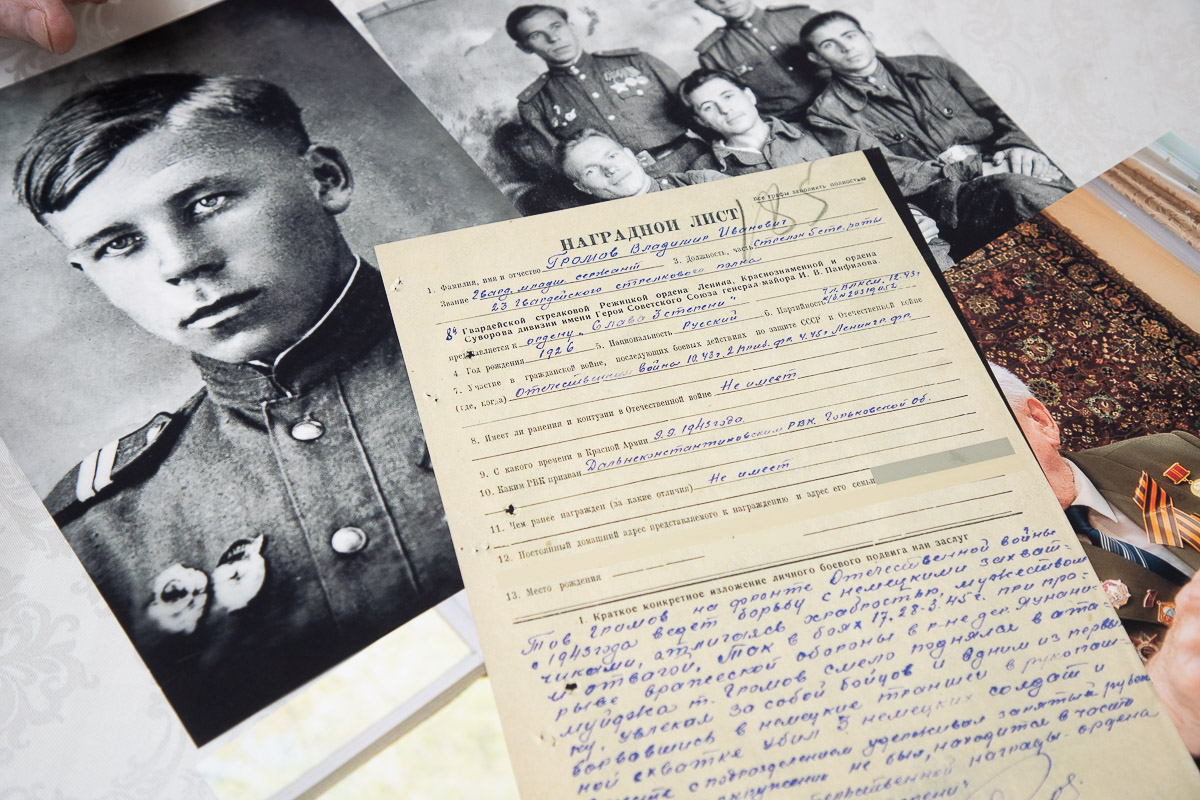 185
все графы заполнить полностью
НАГРАДНОЙ ЛИСТ
1. Фамилия, имя и отчество Громов Владимир Иванович
Звание Гвард. младш. сержант 3. Должность, часть
23 Гвардейского стрелкового полка
8й Гвардейской стрелковой Режицкой ордена Ленина, Краснознаменной и ордена
Суворова дивизии имени Героя Советского Союза генерал майора И. В. Панфилова.
представляется к ордену „Слава
4. Год рождения 1926 5. Национальность Русский 6. Партийность
7. Участие в гражданской войне, последующих боевых действиях по защите СССР и Отечественной войне
(где, когда) Отечественной войны 10.43г. 2 Приб. фр. 4.45г. Ленингр. фр.
8. Имеет ли ранения и контузии в Отечественной войне Не имеет
9. С какого времени в Красной Армии 9.9.1943 года
10. Каким РВК призван Дальнеконстантиновским РВК. Горьковской об.
11. Чем ранее награжден (за какие отличия) Не имеет
12. Постоянный домашний адрес представляемого к награждению и адрес его семьи
13. Место рождения
1. Краткое конкретное изложение личного боевого подвига или заслуг
Тов. Громов на фронте Отечественной войны
с 1943 года ведет борьбу с немецкими захват-
чиками, отличаясь храбростью, мужеством
и отвагой. Так в боях 17.28-3.45г. при про-
рыве вражеской обороны в р-не дер.
т. Громов смело поднялся в ата-
ку, увлекая за собой бойцов и одним из первых
ворвавшись в немецкие траншеи в рукопаш-
ной схватке убил 5 немецких солдат и
вместе с подразделением удерживал занятый
не был, находится в части
награды ордена